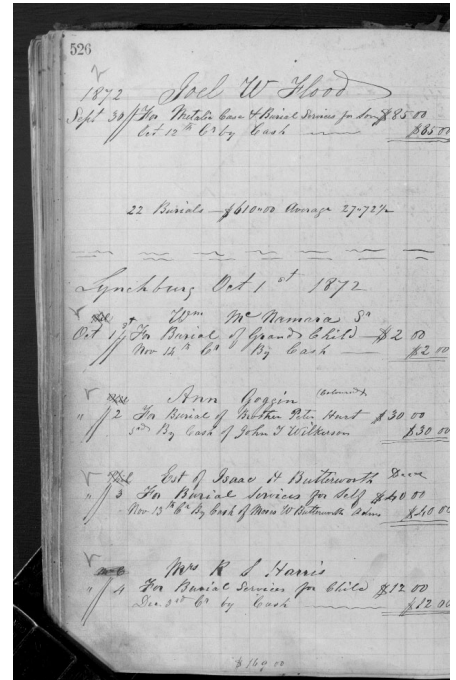 526
1872 Joel W Flood
Sept 30 For Metalic Case & Burial Services for Son $85 00
Oct 12th Cr by Cash $85 00
22 Burials — $610.00 Average 27.72½
Lynchburg Oct 1st 1872
Wm McNamara Sr
Oct 1st For Burial of Grand Child — $2 00
Nov 14th Cr By Cash — $2 00
Ann Goggin (Colored)
" 2 For Burial of Brother Peter Hurt $30 00
By Cash of John T Wilkerson $30 00
Est of Isaac H Butterworth Decd
" 3 For Burial Services for Self $40 00
Nov 13th Cr By Cash of Moses W Butterworth Admr $40 00
Mrs R S Harris
" 4 For Burial Services for Child $12 00
Dec Cr by Cash $12 00
$169 00